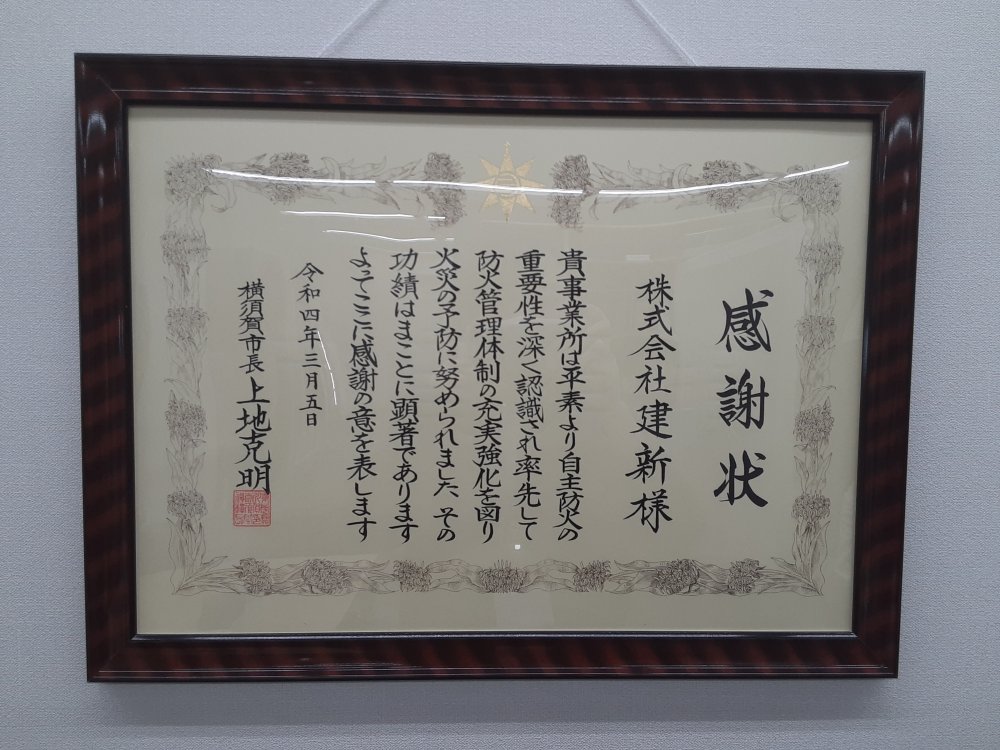 感謝状
株式会社建新様
貴事業所は平素より自主防火の
重要性を深く認識され率先して
防火管理体制の充実強化を図り
火災の予防に努められました その
功績はまことに顕著であります
よってここに感謝の意を表します
令和四年三月五日
横須賀市長 上地克明